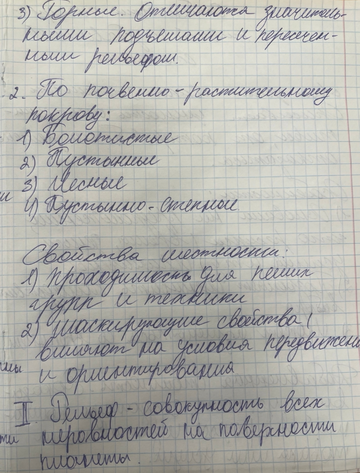 3) Горные. Отличаются значитель-
ными подъемами и пересечен-
ным рельефом.
2. По почвенно-растительному
покрову:
1) Болотистые
2) Пустынные
3) Лесные
4) Пустынно-степные
Свойства местности:
1) проходимость для пеших
групп и техники
2) маскирующие свойства/
влияют на условия передвижени
и ориентирования
II Рельеф - совокупность всех
неровностей на поверхности
планеты.